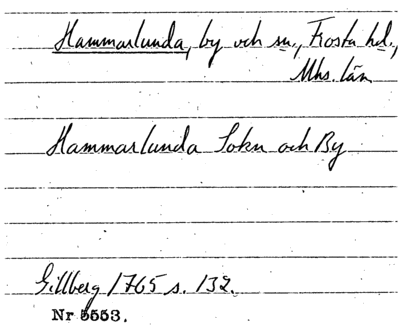 Hammarlunda, by och sn., Frosta hd.,
Mhs. län
Hammarlunda Sokn och By
Gillberg 1765 s. 132.
Nr 5553.